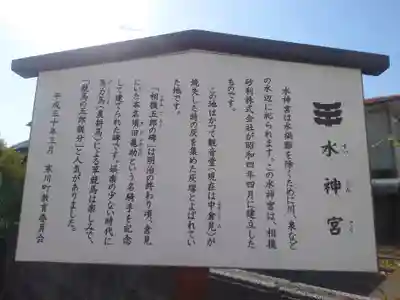 水神宮
すいじんぐう
水神宮は水禍を除くために川、泉など
の水辺に祀られます。この水神宮は、相模
砂利株式会社が昭和四年四月に建立した
ものです。
この地はかつて観音堂(現在は中倉見)が
焼失した時の灰を集めた灰塚とよばれてい
た地です。
「相模五郎の碑」は明治の終わり頃、倉見
にいた本名須田亀助という名騎手を記念
して建てられた碑です。娯楽の少ない時代に
(農耕馬)による草競馬は楽しみで、
「競馬の五郎親分」と人気がありました。
平成三十年三月 寒川町教育委員会